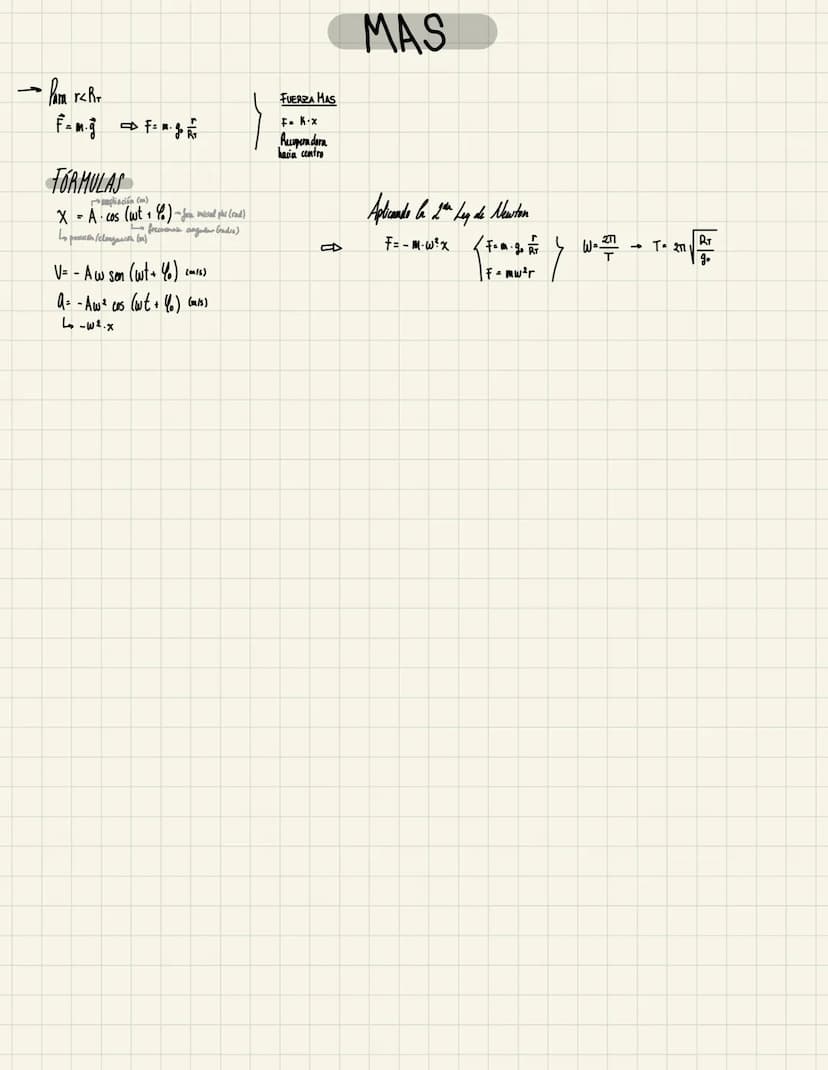 MAS
→ Para r<R_T
F⃗ = m·g⃗ ⇒ F = m·g₀ r/R_T
FUERZA MAS
F = K·x
Recuperadora
hacia centro
FÓRMULAS
↱ ampliación (m)
X = A·cos (ωt + φ₀) → fase inicial phi (rad)
↳ frecuencia angular (rad/s)
↳ posición/elongación (m)
V = - Aω sen (ωt + φ₀) (m/s)
a = - Aω² cos (ωt + φ₀) (m/s)
↳ -ω²·x
Aplicando la 2da Ley de Newton
⇒ F = - m·ω²·x { F = m·g₀ r/R_T
F = mω²r } ω = 2π/T → T = 2π √(R_T/g₀)